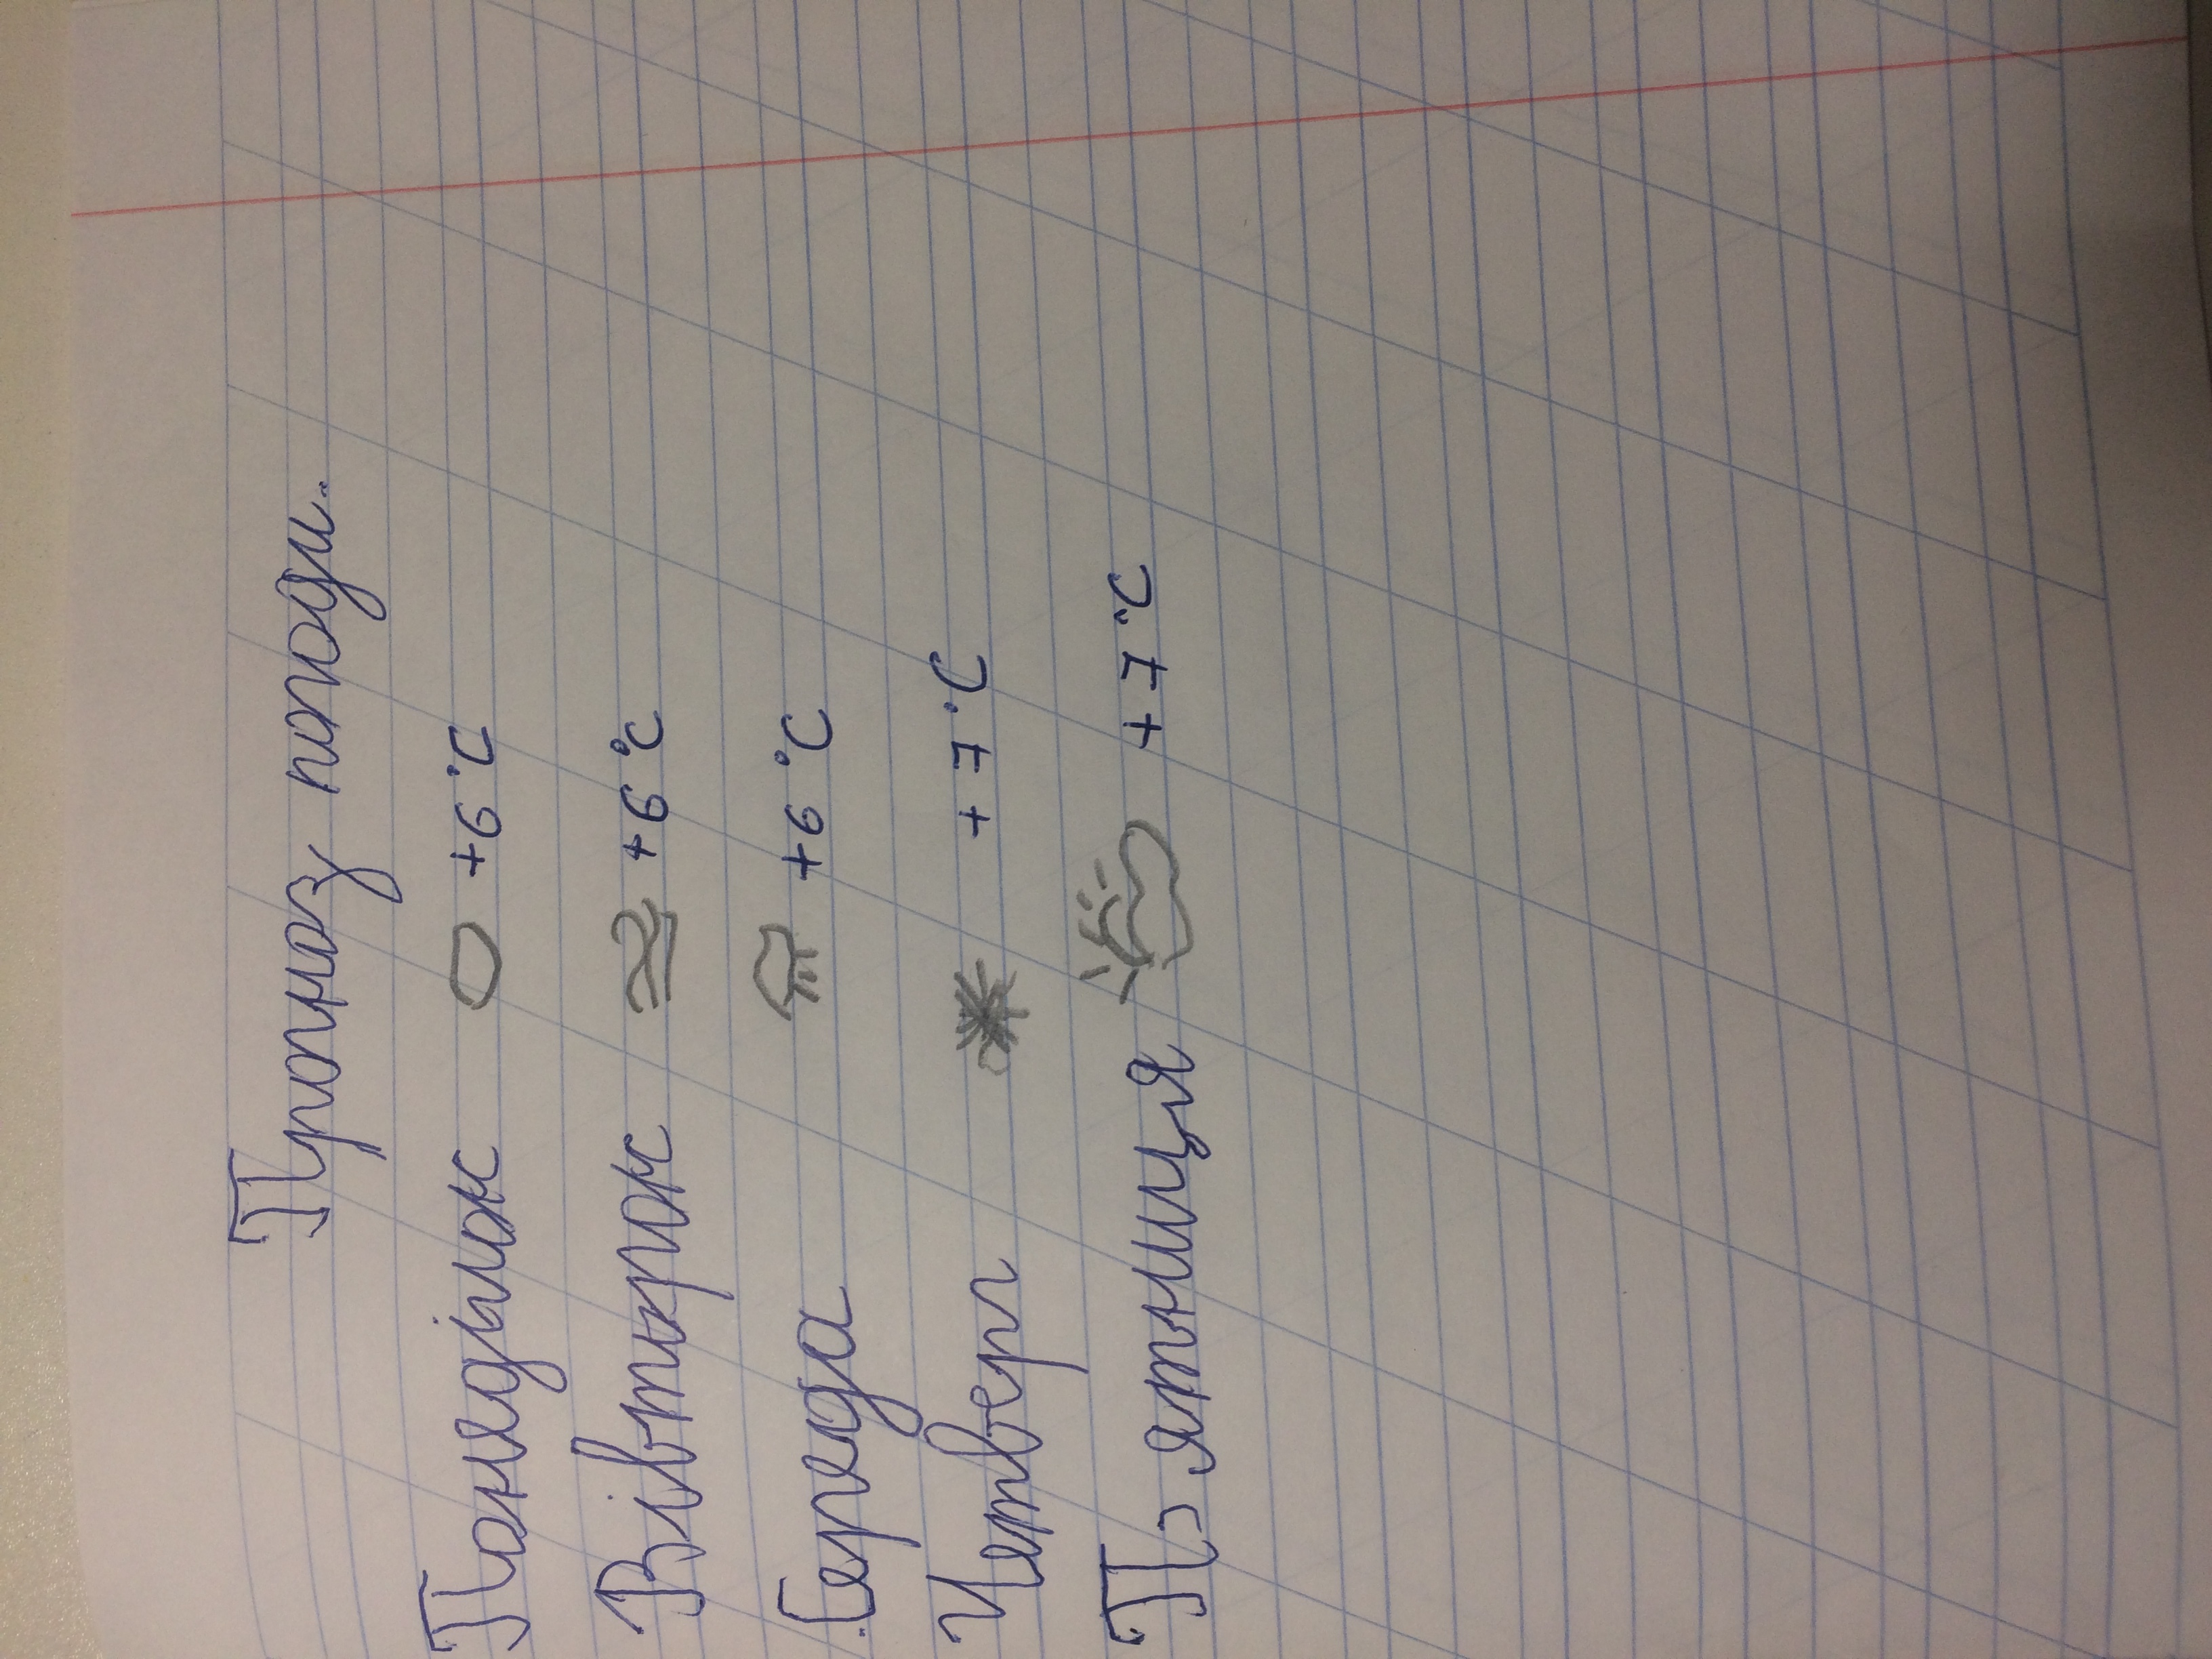 Прогноз погоди.
Понеділок +6°C
Вівторок +6°C
Середа +6°C
Четверг +7°C
П'ятниця +7°C